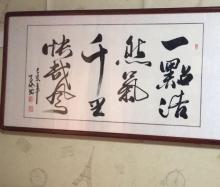 一點浩
然氣
千里
快哉風